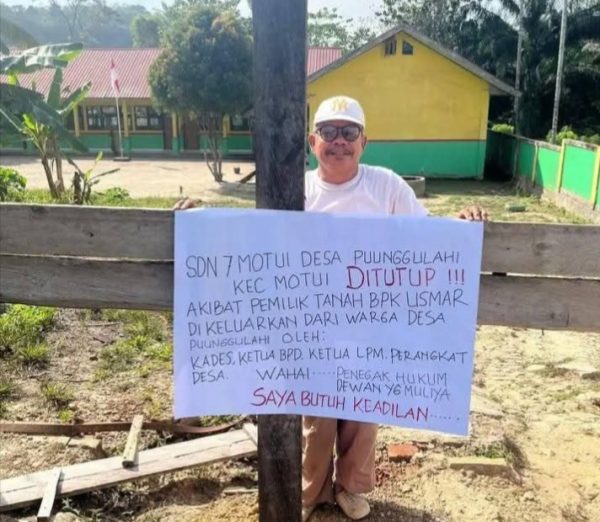 NY
SDN 7 MOTUI DESA PUUNGGULAHI
KEC MOTUI DITUTUP !!!
AKIBAT PEMILIK TANAH BPK USMAR
DI KELUARKAN DARI WARGA DESA
PUUNGGULAHI OLEH:
KADES, KETUA BPD. KETUA LPM. PERANGKAT
DESA. WAHAI..... PENEGAK HUKUM
DEWAN YG MULIYA
SAYA BUTUH KEADILAN......